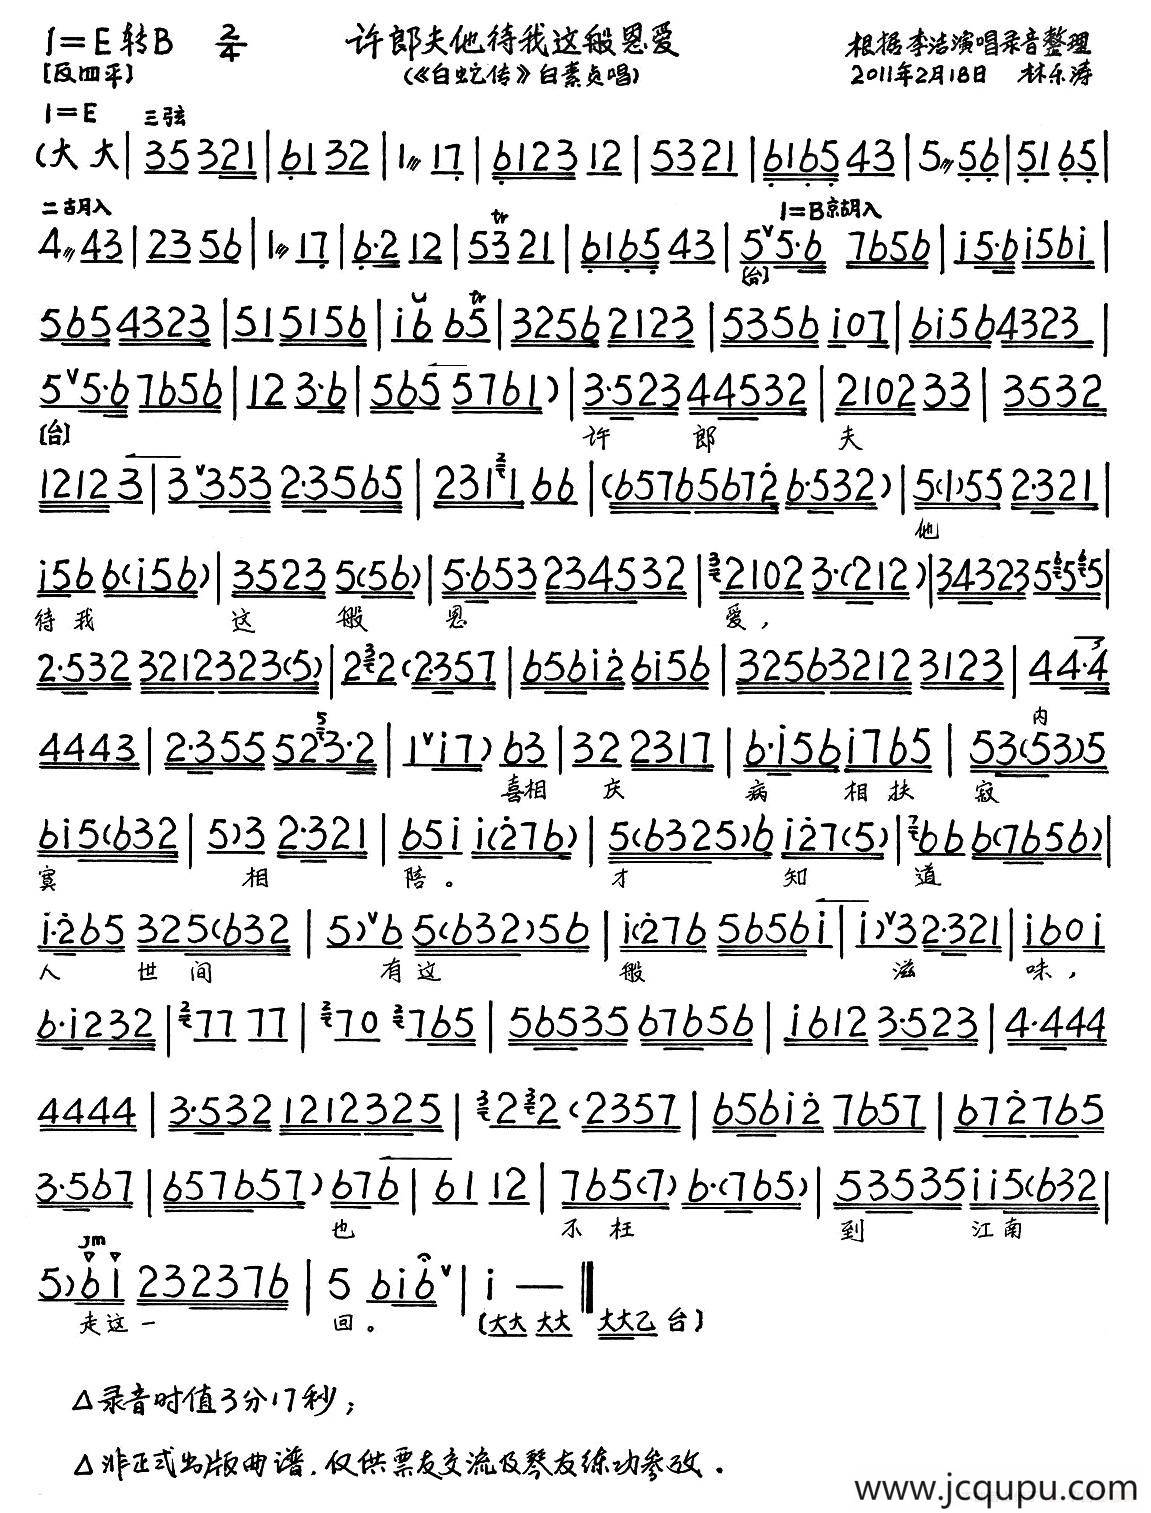 1=E转B 2/4 许郎夫他待我这般恩爱 根据李洁演唱录音整理
[反四平] (《白蛇传》白素贞唱) 2011年2月18日 林乐涛
1=E 三弦
(大 大 | 35 321 | 6132 | 1〃 17 | 6123 12 | 5321 | 6165 43 | 5〃 56 | 5165 |
二胡入 tr 1=B京胡入
4〃 43 | 23 56 | 1〃 17 | 6·2 12 | 53 21 | 6165 43 | 5ˇ5·6 7656 | i5·6i56i |
[台]
tr
5654323 | 515156 | i6 65 | 32562123 | 5356 i07 | 6i564323 |
5ˇ5·67656 | 12 3·6 | 565 5761) | 3·523 44532 | 2102 33 | 3532
[台] 许 郎 夫
1212 3 | 3ˇ353 2·3565 | 231 1 66 | (65765672 6·532) | 5(1)55 2·321 |
他
i566(i56) | 3523 5(56) | 5·653 234532 | 2102 3·(212) | 34323 5 5 5 |
待我 这 般 恩 爱,
3
2·532 3212323(5) | 2 2(2·357 | 656i2 6i56 | 32563212 3123 | 44·4
4443 | 2·355 523·2 | 1ˇi7) 63 | 32 2317 | 6·i56i765 | 53(53)5
内
喜相 庆 病 相 扶 寂
6i5(632 | 5)3 2·321 | 65i i(276) | 5(6325)6 i27(5) | 666(7656) |
寞 相 陪。 才 知 道
i·265 325(632 | 5)ˇ6 5(632)56 | i(276 5656i | i)ˇ32·321 | i60i
人 世 间 有这 般 滋 味,
6·i232 | 77 77 | 70 765 | 56535 67656 | i612 3·523 | 4·444
4444 | 3·532 1212325 | 2 2(2357 | 656i2 7657 | 672765
3·567 | 657657) 676 | 61 12 | 765(7) 6·(765) | 53535ii5(632
也 不 枉 到 江南
jm
5)6i 232376 | 5 6i6ˇ | i — ‖
走这一 回。 (大大 大大 大大乙 台)
△录音时值3分17秒;
△非正式出版曲谱,仅供票友交流及琴友练功参改.
www.jcqupu.com